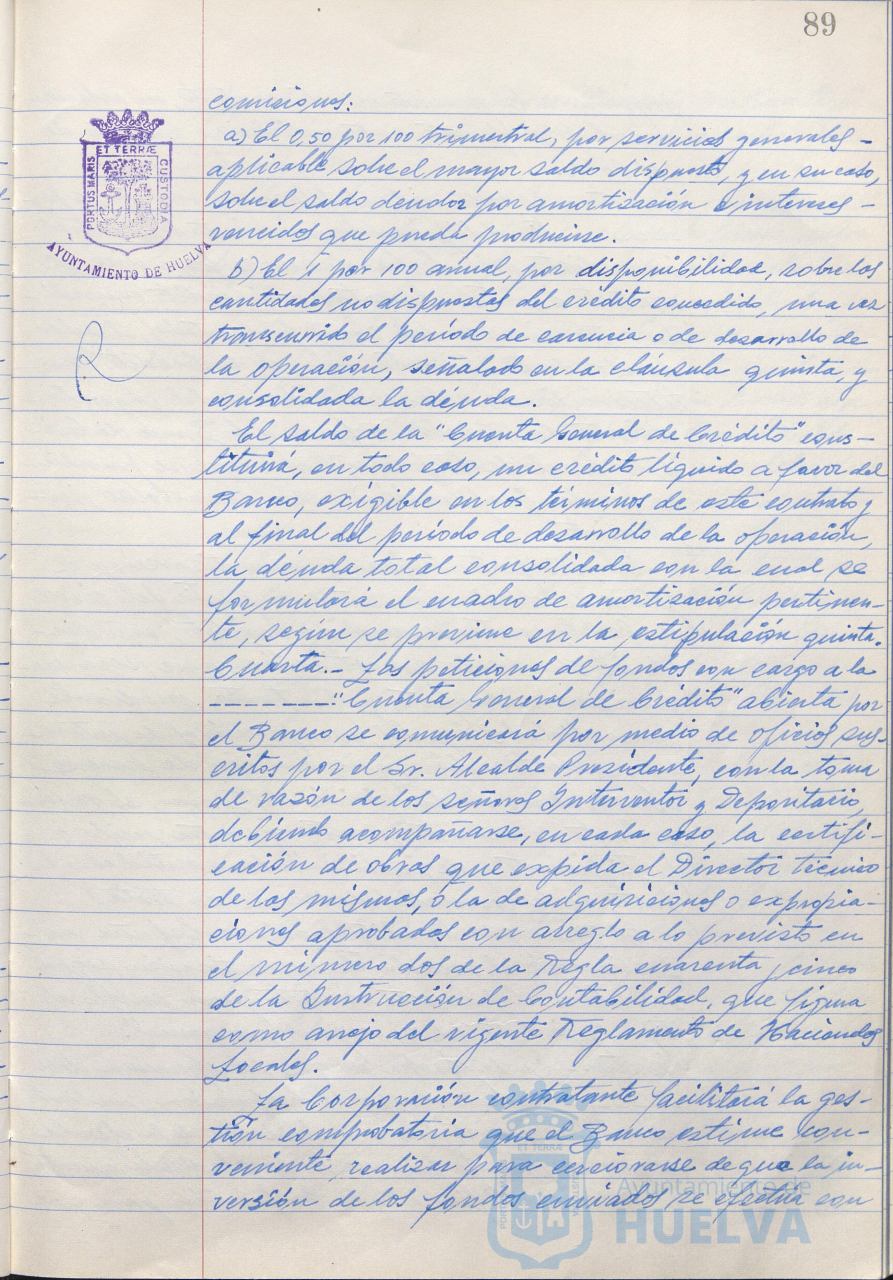 89
comisiones:
a) El 0,50 por 100 trimestral, por servicios generales -
aplicable sobre el mayor saldo dispuesto, y en su caso,
sobre el saldo deudor por amortización e intereses -
vencidos que pueda producirse.
b) El 1 por 100 anual, por disponibilidad, sobre las
cantidades no dispuestas del crédito concedido, una vez
transcurrido el período de carencia o de desarrollo de
la operación, señalado en la cláusula quinta, y
consolidada la déuda.
El saldo de la "Cuenta General de Crédito" cons-
tituirá, en todo caso, un crédito líquido a favor del
Banco, exigible en los términos de este contrato y
al final del período de desarrollo de la operación,
la déuda total consolidada con la cual se
formulará el cuadro de amortización pertinen-
te, según se previene en la estipulación quinta.
Cuarta.- Las peticiones de fondos con cargo a la
-------: "Cuenta General de Crédito" abierta por
el Banco se comunicará por medio de oficios sus-
critos por el Sr. Alcalde Presidente, con la toma
de razón de los señores Interventor y Depositario,
debiendo acompañarse, en cada caso, la certifi-
cación de obras que expida el Director técnico
de las mismas, o la de adquisiciones o expropia-
ciones aprobadas con arreglo a lo previsto en
el número dos de la Regla cuarenta y cinco
de la Instrucción de Contabilidad, que figura
como anejo del vigente Reglamento de Haciendas
Locales.
La Corporación contratante facilitará la ges-
tión comprobatoria que el Banco estime con-
veniente realizar para cerciorarse de que la in-
versión de los fondos enviados se efectúa con
PORTUS MARIS ET TERRÆ CUSTODIA
AYUNTAMIENTO DE HUELVA
Ayuntamiento de
HUELVA